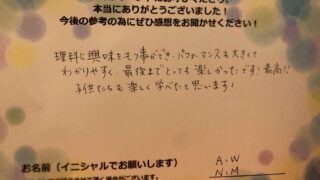 本当にありがとうございました！
今後の参考の為にぜひ感想をお聞かせください！
理科に興味をもつ事ができ、パフォーマンスも大きくて
わかりやすく、最後までとっても楽しかったです！最高!!
子供たちも楽しく学べたと思います！
お名前（イニシャルでお願いします）
A.W
N.M